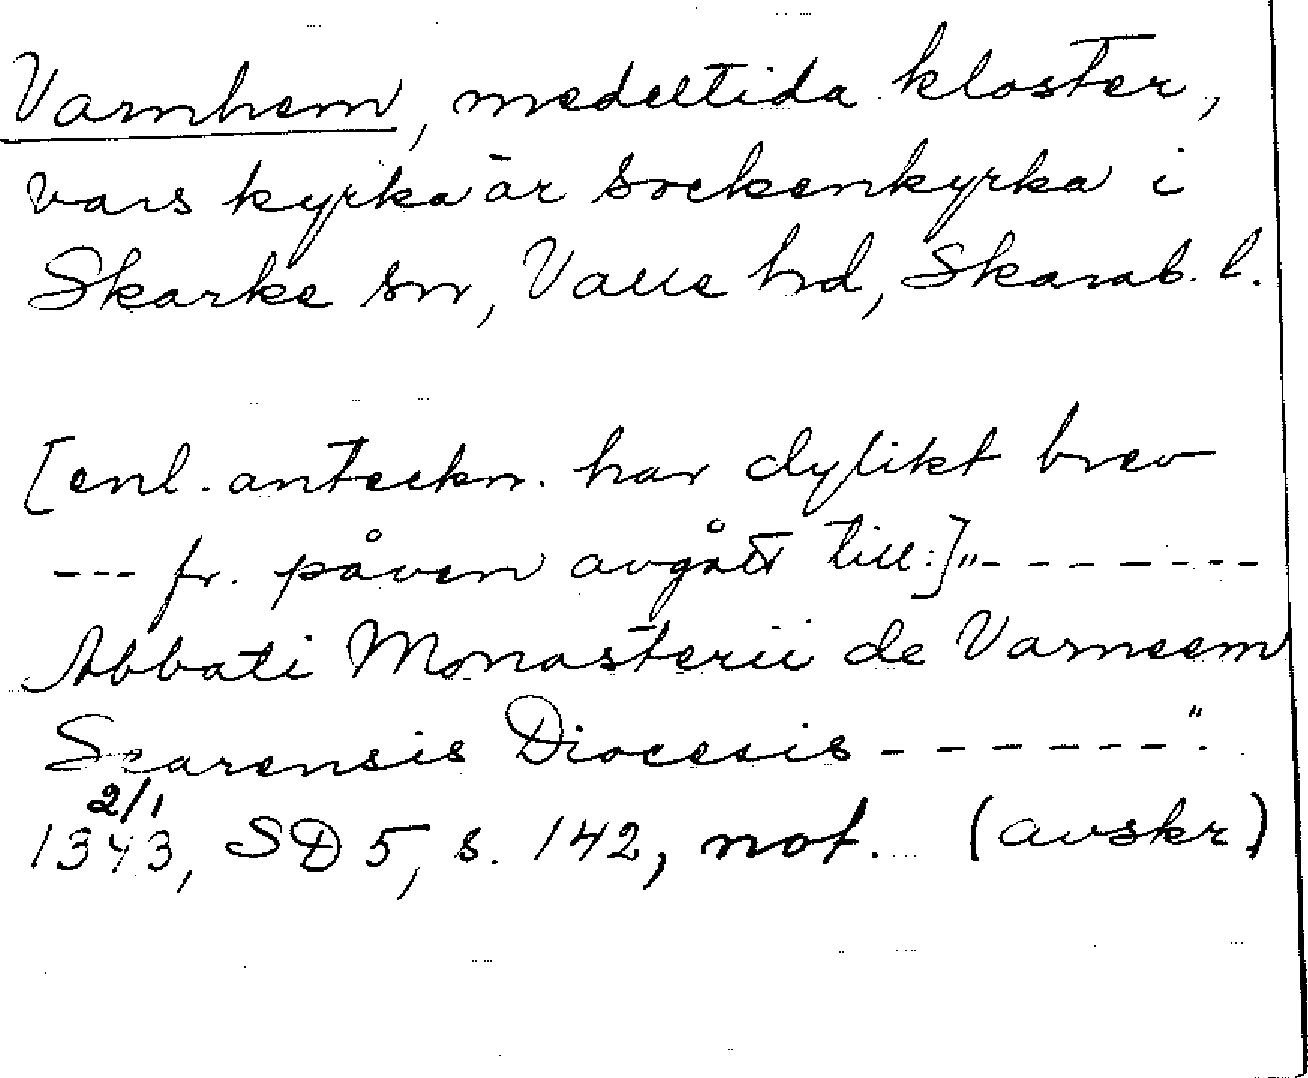 Varnhem, medeltida kloster,
vars kyrka är sockenkyrka i
Skarke sn, Valle hd, Skarab. l.
[enl. anteckn. har dylikt brev
--- fr. påven avgått till:]"-------
Abbati Monasterii de Varneem
Scarensis Diocesis -------".
2/1
1343, SD 5, s. 142, not. (avskr.)